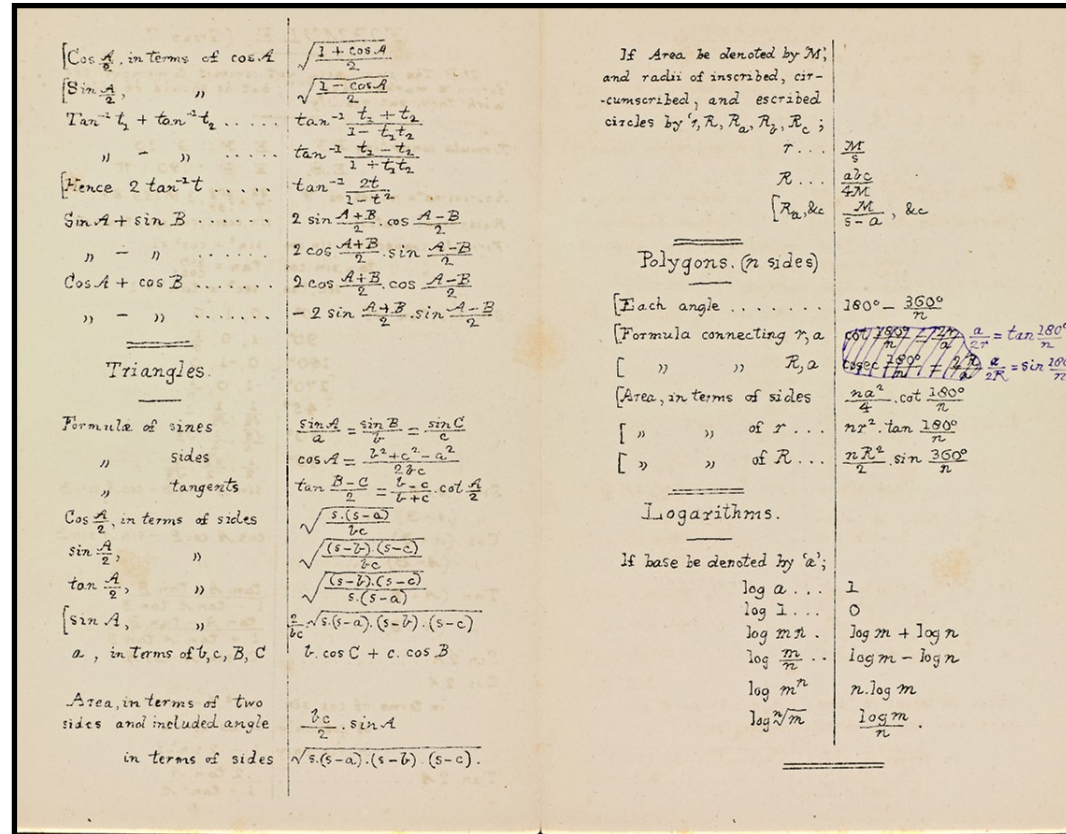 [Cos A/2, in terms of cos A √((1 + cos A)/2)
[Sin A/2, „ √((1 − cos A)/2)
Tan⁻¹ t₁ + tan⁻¹ t₂ ..... tan⁻¹ (t₁ + t₂)/(1 − t₁t₂)
„ − „ ..... tan⁻¹ (t₁ − t₂)/(1 + t₁t₂)
[Hence 2 tan⁻¹ t ..... tan⁻¹ 2t/(1 − t²)
Sin A + sin B ...... 2 sin (A+B)/2 . cos (A−B)/2
„ − „ ...... 2 cos (A+B)/2 . sin (A−B)/2
Cos A + cos B ....... 2 cos (A+B)/2 . cos (A−B)/2
„ − „ ...... − 2 sin (A+B)/2 . sin (A−B)/2
Triangles.
Formulæ of sines sin A/a = sin B/b = sin C/c
„ sides cos A = (b² + c² − a²)/2bc
„ tangents tan (B−C)/2 = (b−c)/(b+c) . cot A/2
Cos A/2, in terms of sides √(s.(s−a)/bc)
sin A/2, „ √((s−b).(s−c)/bc)
tan A/2, „ √((s−b).(s−c)/s.(s−a))
[sin A, „ 2/bc .√(s.(s−a).(s−b).(s−c))
a, in terms of b, c, B, C b. cos C + c. cos B
Area, in terms of two
sides and included angle bc/2 . sin A
in terms of sides √(s.(s−a).(s−b).(s−c)).
If Area be denoted by 'M',
and radii of inscribed, cir-
-cumscribed, and escribed
circles by 'r, R, Rₐ, R_b, R_c;
r... M/s
R... abc/4M
[Rₐ, &c M/(s−a), &c
Polygons. (n sides)
[Each angle ........ 180° − 360°/n
[Formula connecting r, a cot 180°/n = 2r/a a/2r = tan 180°/n
[ „ „ R, a cosec 180°/n = 2R/a a/2R = sin 180°/n
[Area, in terms of sides na²/4 . cot 180°/n
[ „ „ of r... nr². tan 180°/n
[ „ „ of R... nR²/2 . sin 360°/n
Logarithms.
If base be denoted by 'a';
log a ... 1
log 1... 0
log mn . log m + log n
log m/n .. log m − log n
log mⁿ n. log m
log ⁿ√m log m/n .